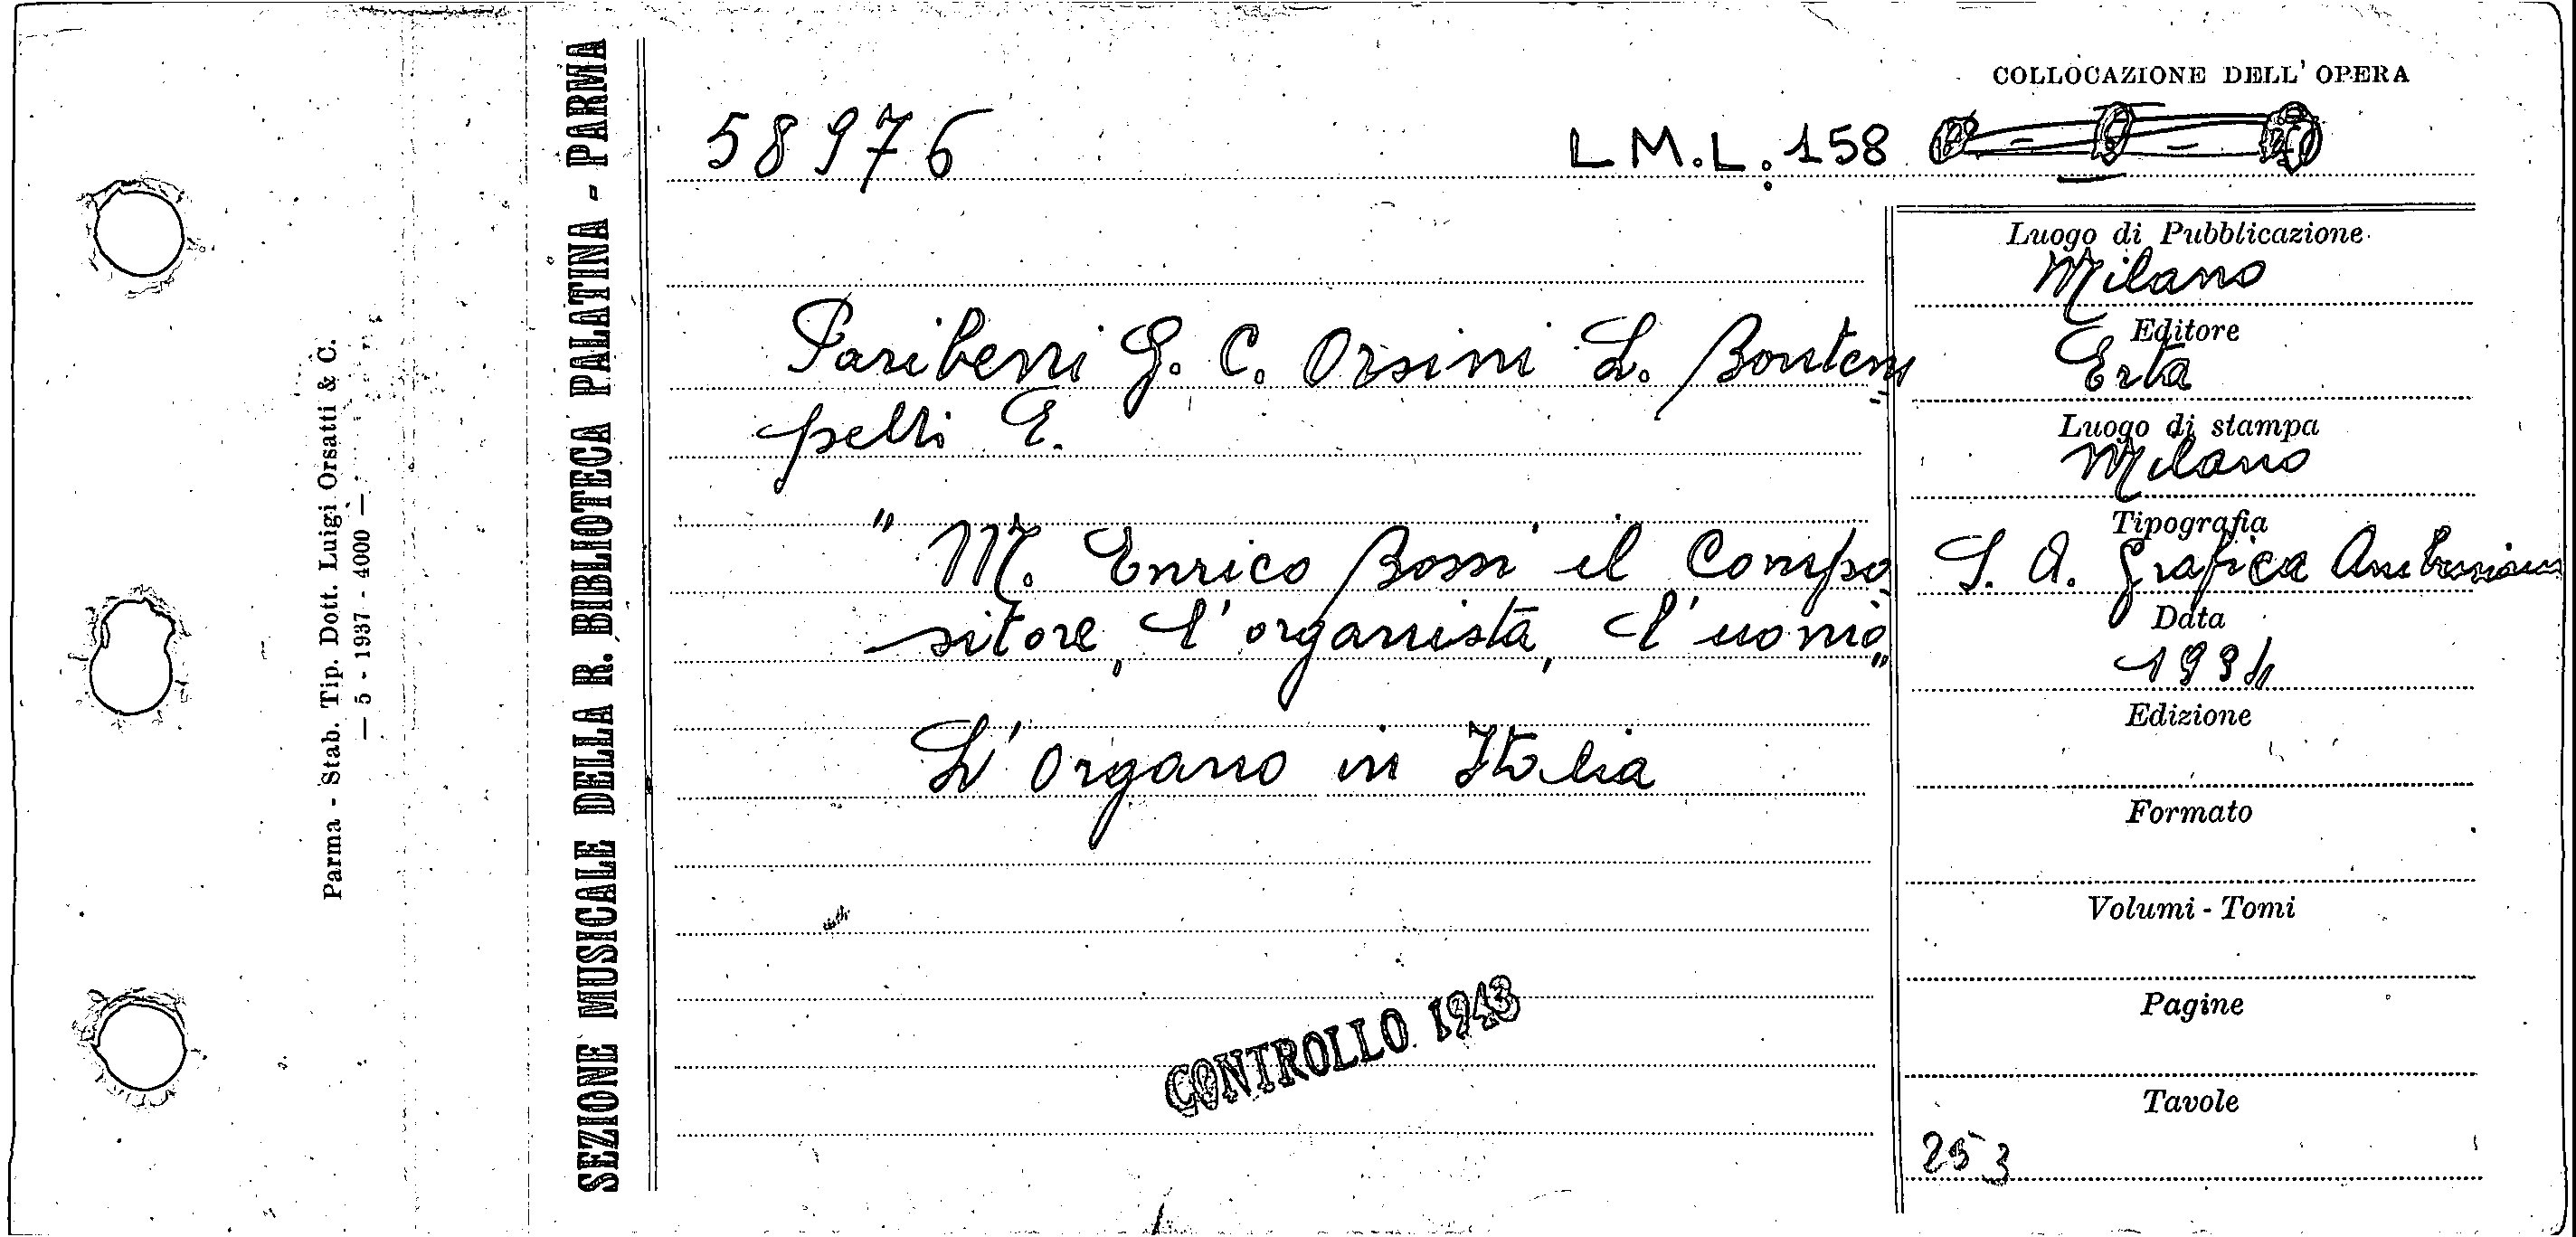 COLLOCAZIONE DELL' OPERA
58976
L M.L. 158
Paribeni G. C. Orsini L. Bontem=
pelli E.
" M. Enrico Bossi il Compo=
sitore, l'organista, l'uomo"
L'Organo in Italia
CONTROLLO 1943
Luogo di Pubblicazione
Milano
Editore
Erta
Luogo di stampa
Milano
Tipografia
S. A. Grafica Ambrosiana
Data
1934
Edizione
Formato
Volumi - Tomi
Pagine
Tavole
253
SEZIONE MUSICALE DELLA R. BIBLIOTECA PALATINA - PARMA
Parma - Stab. Tip. Dott. Luigi Orsatti & C.
— 5 - 1937 - 4000 —